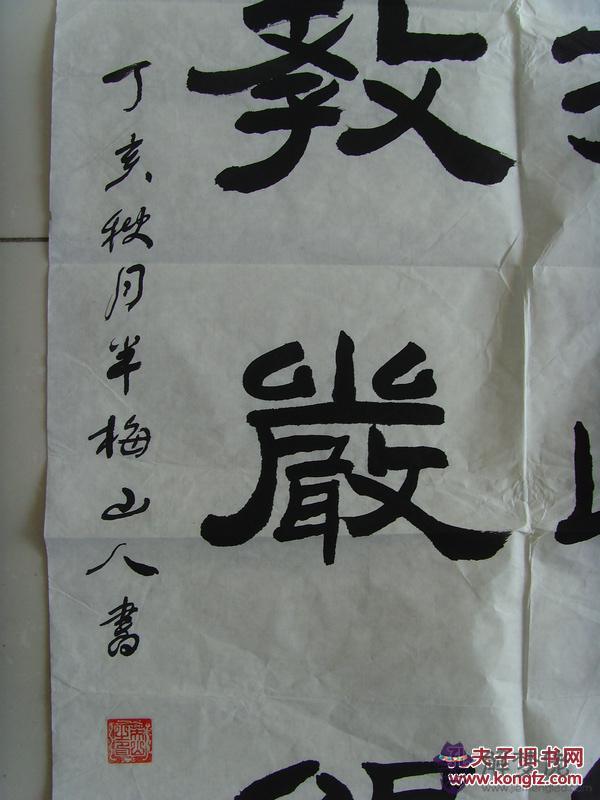 教嚴
丁亥秋月半梅山人書
夫子旧书网
www.kongfz.com